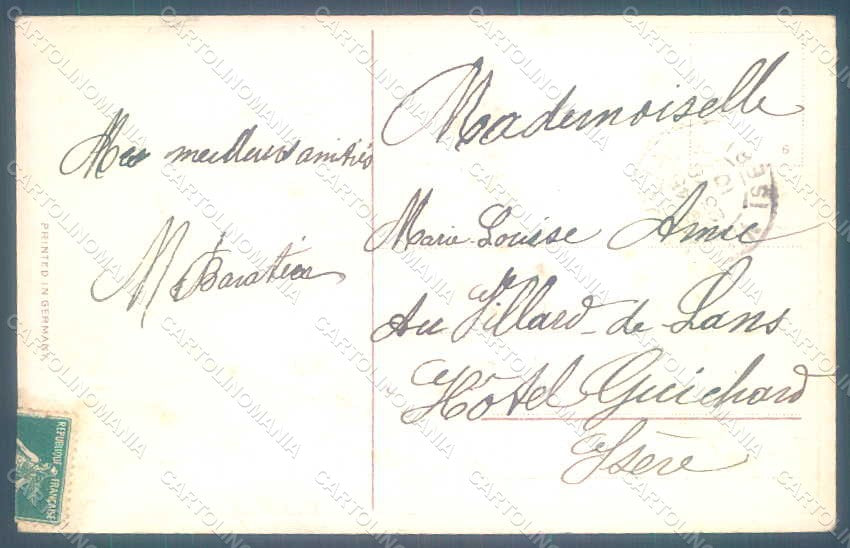 Mes meilleures amitiés
M Baratier
PRINTED IN GERMANY
REPUBLIQUE FRANÇAISE
Mademoiselle
Marie-Louise Amic
Au Villard-de-Lans
Hôtel Guichard
Isère
6
CARTOLINOMANIA